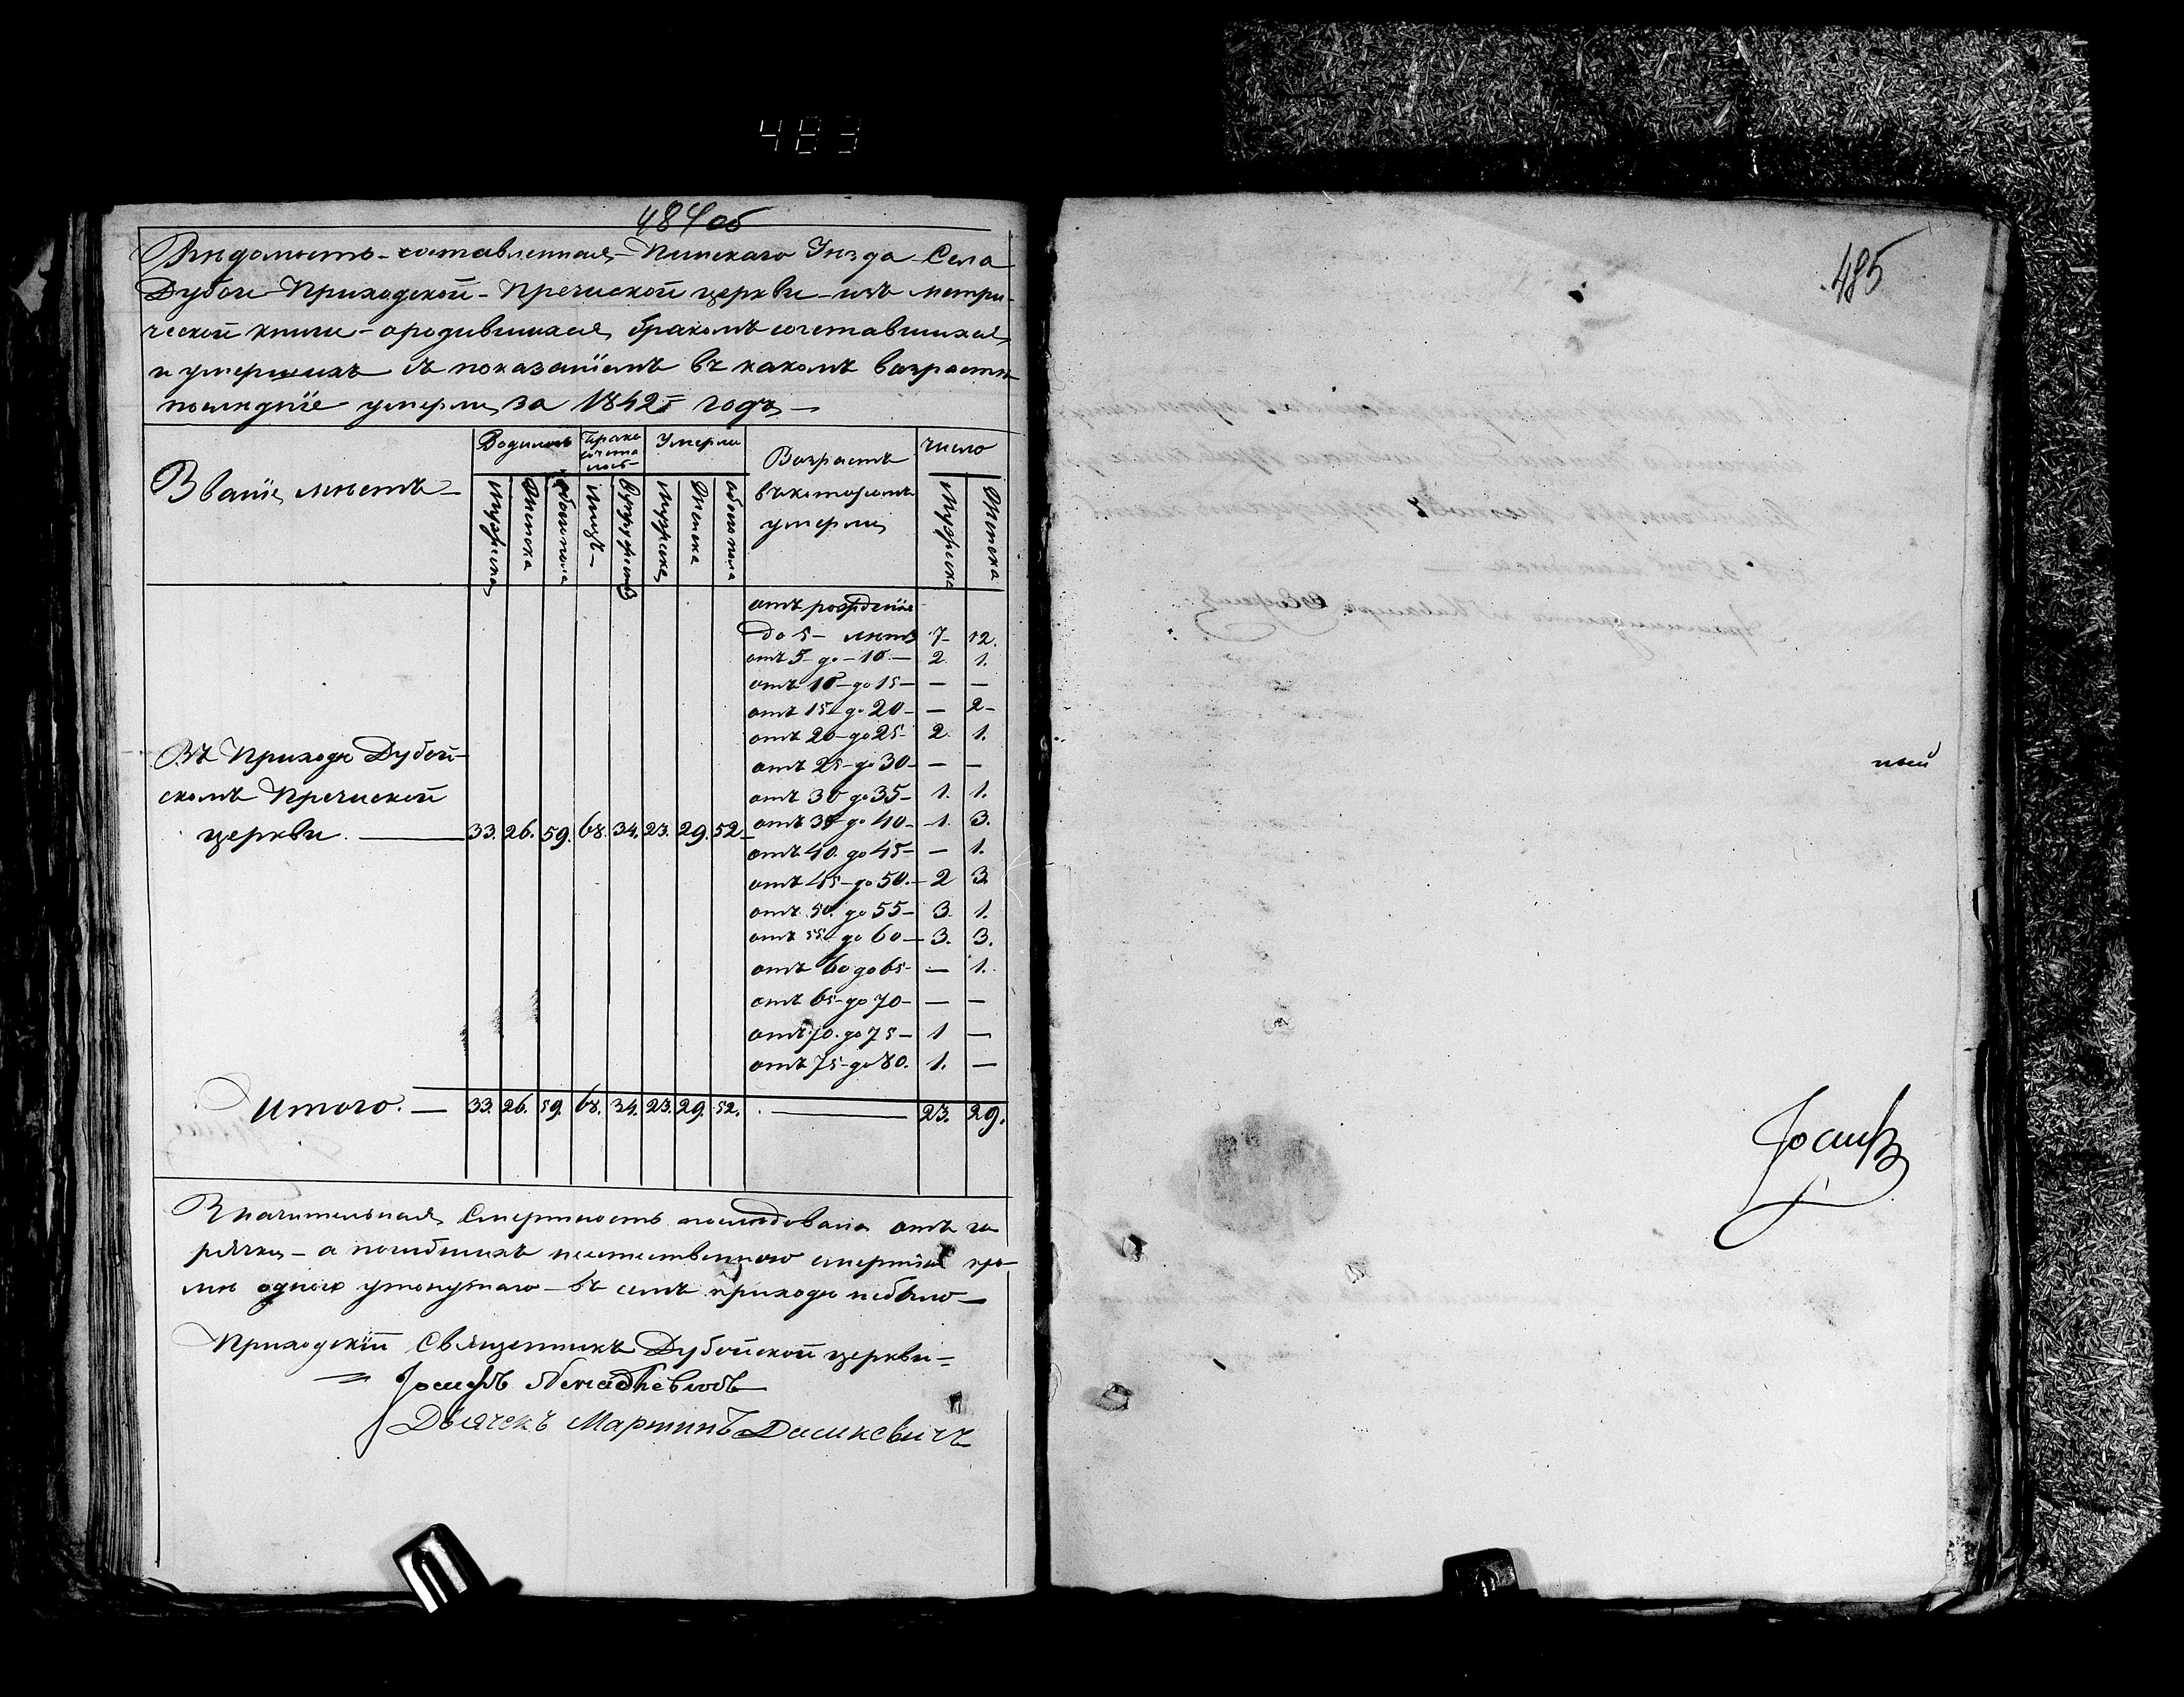 483
484об
Вѣдомость составленная Пинскаго Уѣзда Села
Дубои Приходской Пречиской церкви изъ метри-
ческой книги о родившихся, бракомъ сочетавшихся,
и умершихъ съ показанiемъ въ какомъ возрастѣ
послѣднiе умерли за 1842 годъ
Званiе мѣстъ
Родилось
Брако сочета лось
Умерли
Возрастъ въ которомъ умерли
число
Мужеска
Женска
обоего пола
Лицъ
Супружествъ
Мужеска
Женска
обоего пола
Мужеска
Женска
отъ рожденiя
до 5 лѣтъ 7 12.
отъ 5 до 10 2. 1.
отъ 10 до 15 — —
отъ 15 до 20 — 2
отъ 20 до 25 2. 1.
отъ 25 до 30 — —
отъ 30 до 35 1. 1.
отъ 35 до 40 1. 3.
отъ 40. до 45 — 1.
отъ 45 до 50. 2 3.
отъ 50. до 55 3. 1.
отъ 55 до 60 3. 3.
отъ 60 до 65 — 1.
отъ 65 до 70 — —
отъ 70. до 75 1 —
отъ 75 до 80. 1. —
Въ Приходѣ Дубой-
скомъ Пречиской
церкви. 33. 26. 59. 68. 34. 23. 29. 52.
Итого. 33. 26. 59. 68. 34. 23. 29. 52. 23. 29.
Значительная Смертность послѣдовала отъ го
рячки а погибшихъ неестественною смертiю кро-
мѣ одного утонутаго въ семъ приходѣ небыло
Приходскiй Священникъ Дубойской церкви
Iосифъ
Дьячекъ Мартинъ
485
ный
Iосифъ